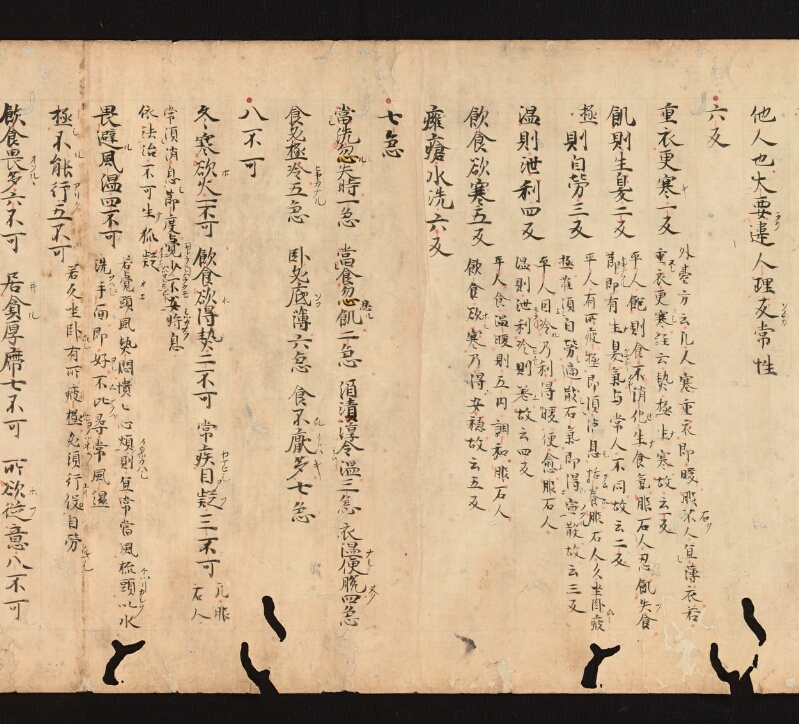 他人也大要違人理反常性
六反
重衣更寒一反 外臺方云凡人寒重衣即暖服石人宜薄衣若
重衣更寒經云熱極生寒故云一反
飢則生臭二反 平人飽則食不消化生食氣服石人忍飢失食
節即有生臭氣与常人不同故云二反
極則自勞三反 平人有所疲極即須消息恬養服石人久坐卧疲
極唯須自勞適散石氣即得宣散故云三反
温則泄利四反 平人因冷乃利得暖便愈服石人
温則泄利冷則差故云四反
飲食欲寒五反 平人食温暖則五内調和服石人
飲食欲寒乃得安穩故云五反
癰瘡水洗六反
七急
當洗勿失時一急 當食勿忍飢二急 酒清淳令温三急 衣温便脱四急
食必極冷五急 卧必底薄六急 食不厭多七急
八不可
冬寒欲火一不可 飲食欲得熱二不可 常疾自疑三不可 凡服石人
常須消息節度覺少不安將息
依法治不可生狐疑
畏避風温四不可 若覺頭風熱悶憒々心煩則宜常當風梳頭以水
洗手面即好不比尋常風濕
極不能行五不可 若久坐卧有所疲極必須行役自勞
飲食畏多六不可 居貪厚席七不可 所欲從意八不可